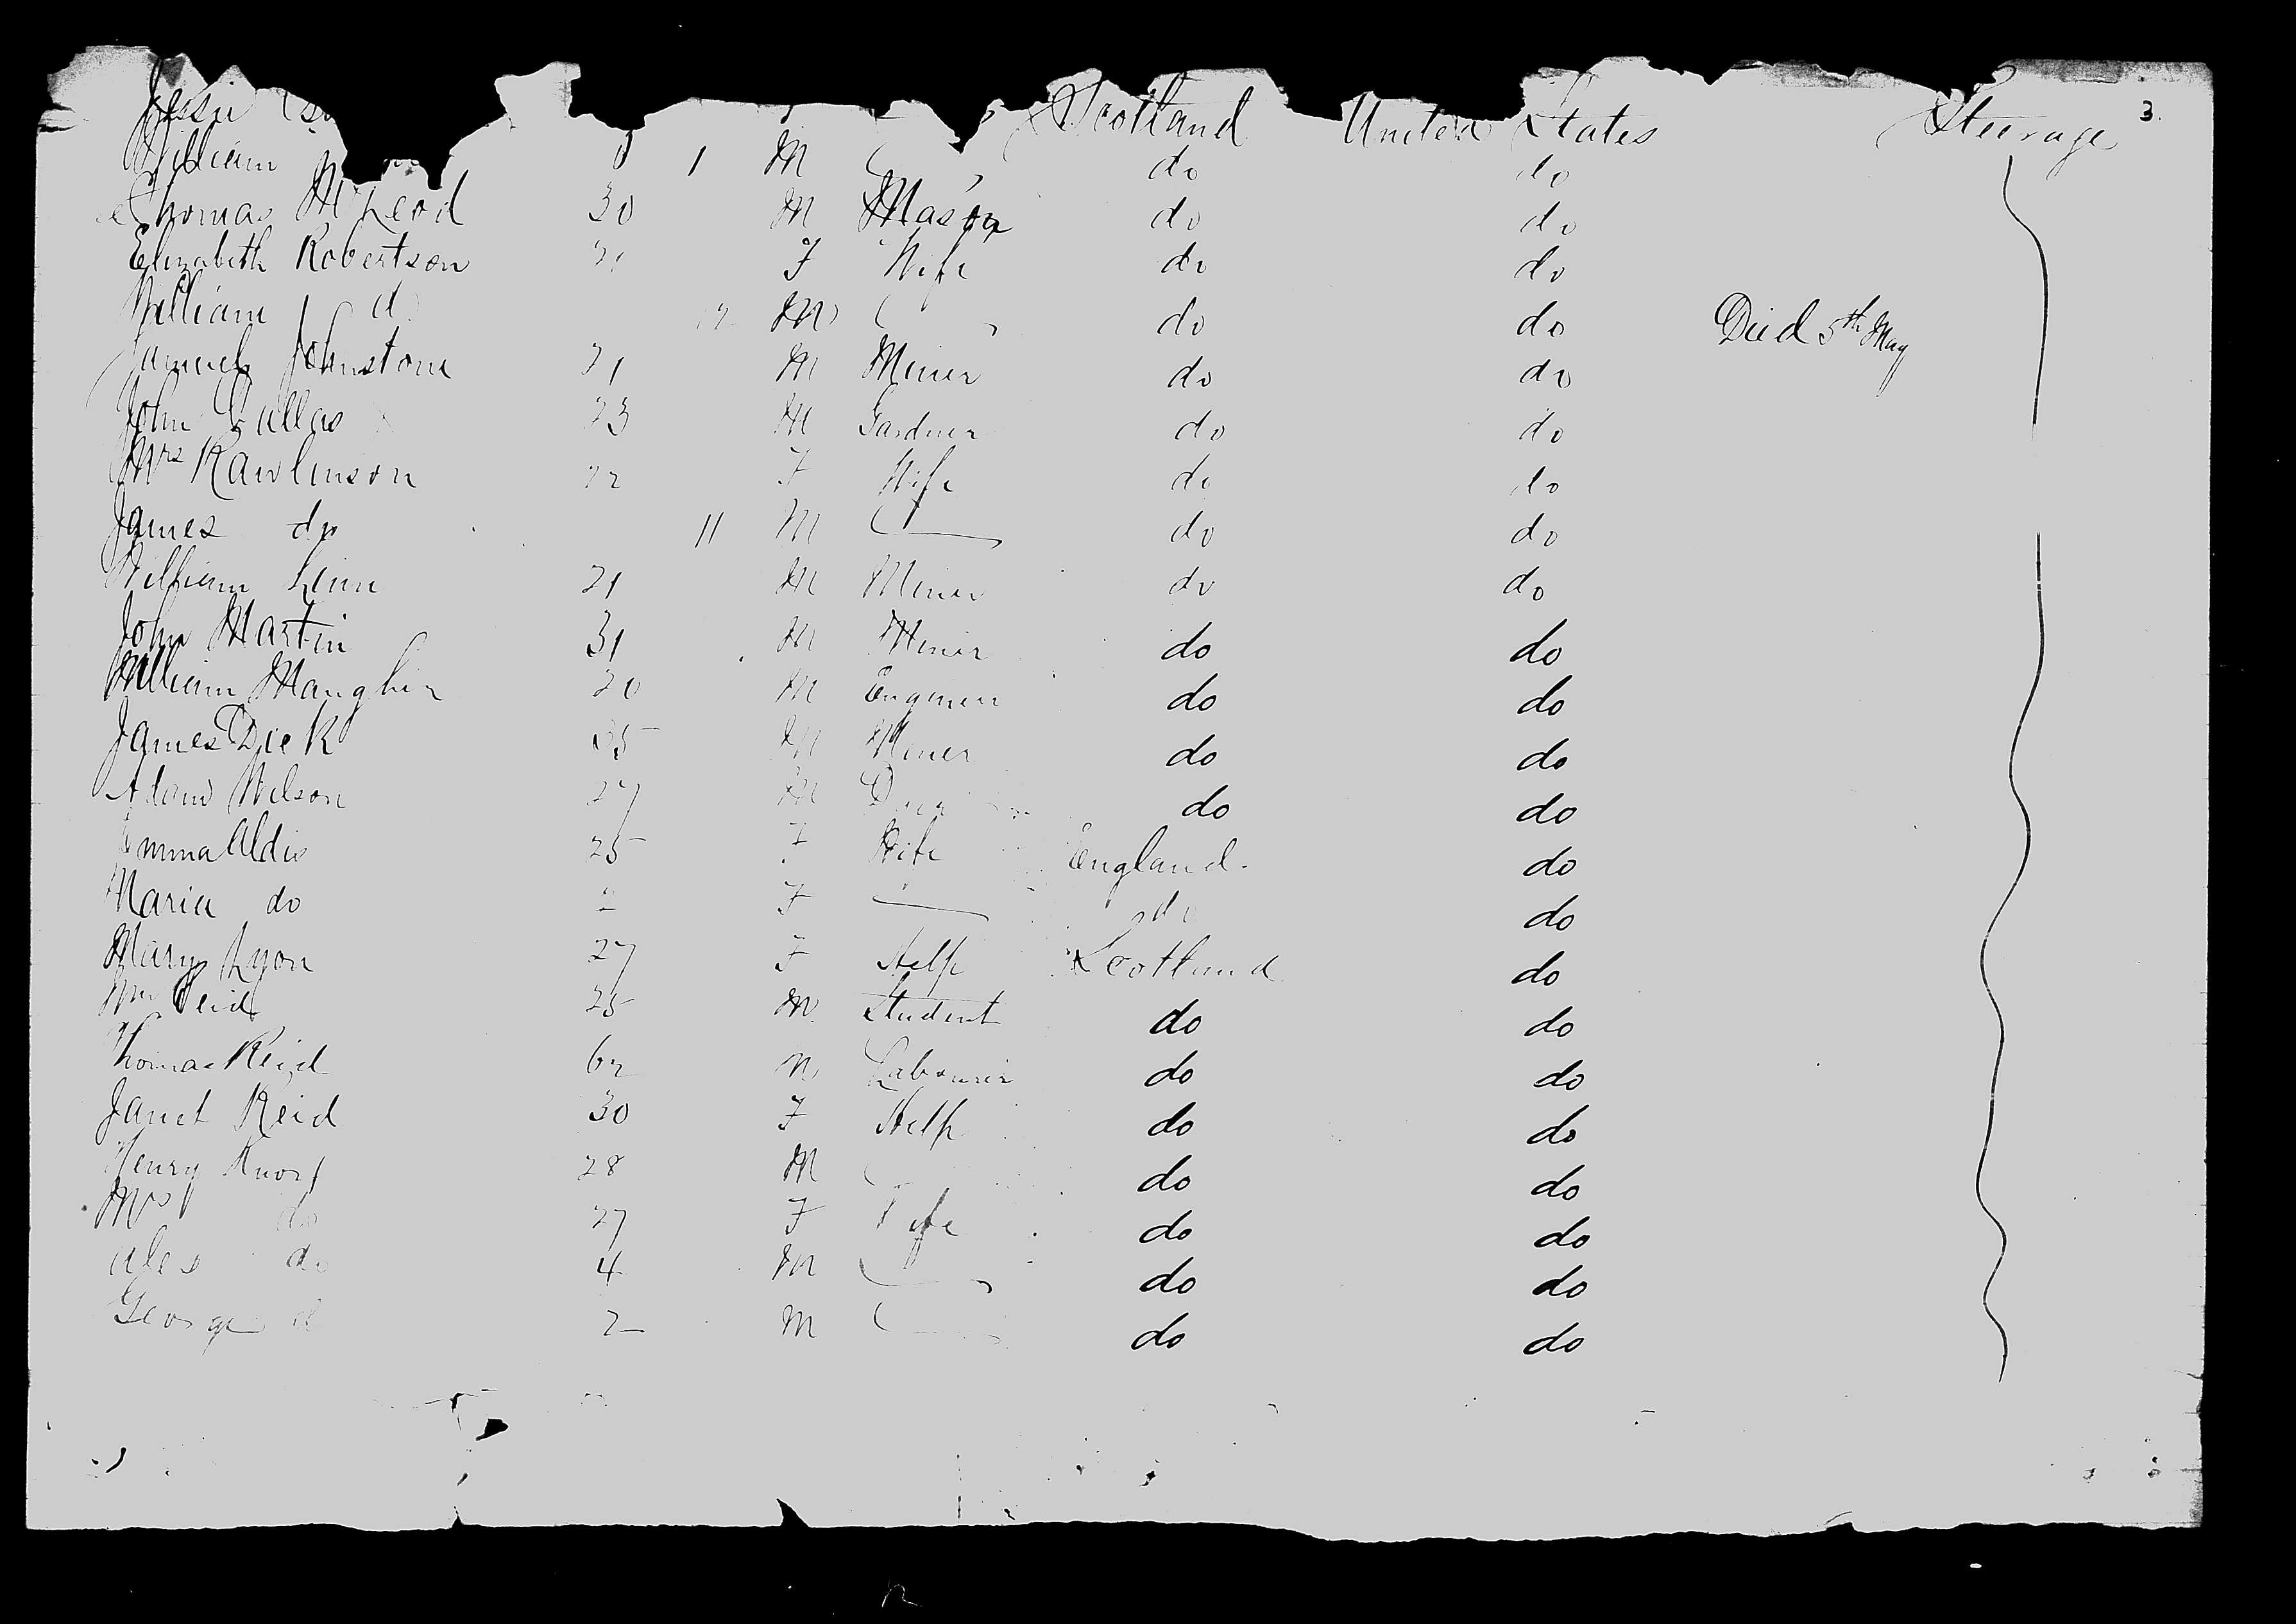 Jessie Scotland United States Steerage 3.
William 1 M do do
Thomas McLeod 30 M Mason do do
Elizabeth Robertson F Wife do do
William d M do do Died 5th May
Johnstone 21 M Miner do do
John 23 M Gardner do do
Mrs Rawlinson 22 F Wife do do
James do 11 M do do
William 21 M Miner do do
John Martin 31 M Miner do do
William 20 M Engineer do do
James Dick M Miner do do
Adam Wilson 27 M do do
Emma Aldis 25 F Wife England do
Maria do 2 F do do
Mary Lyon 27 F Help Scotland do
Wm Reid 25 M Student do do
Thomas Reid 62 M Labourer do do
Janet Reid 30 F Help do do
Henry 28 M do do
Mrs do 27 F Wife do do
Alex do 4 M do do
George d 2 M do do